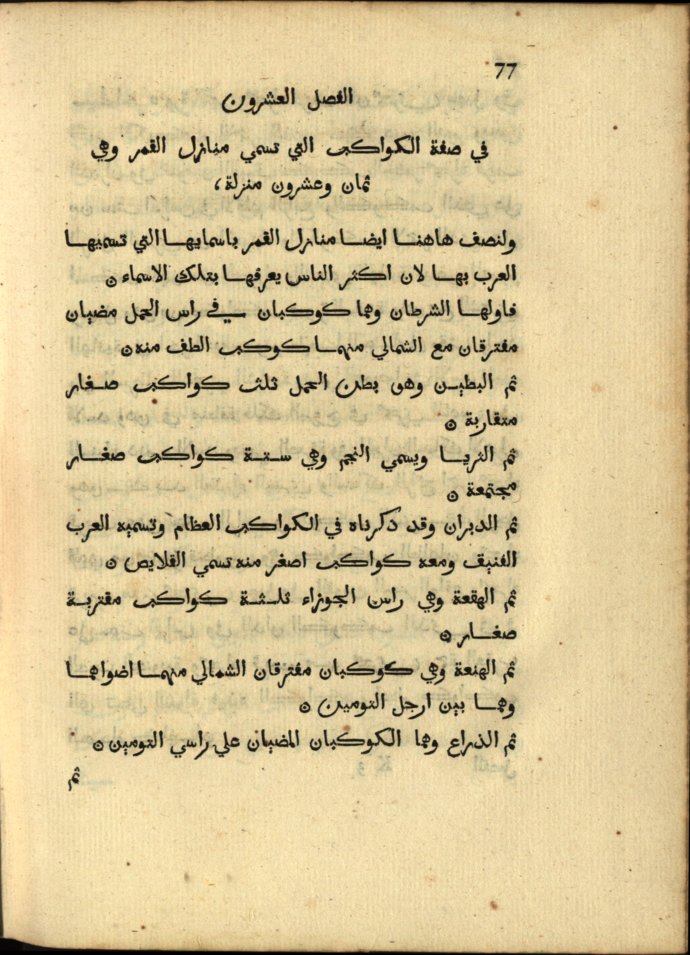 77
الفصل العشرون
في صفة الكواكب التي تسمي منازل القمر وهي
ثمان وعشرون منزلة ،
ولنصف هاهنا ايضا منازل القمر باسمايها التي تسميها
العرب بها لان اكثر الناس يعرفها بتلك الاسماء ۞
فاولها الشرطان وهما كوكبان في راس الحمل مضيان
مفترقان مع الشمالي منهما كوكب الطف منه ۞
ثم البطين وهو بطن الحمل ثلث كواكب صغار
متقاربة ۞
ثم الثريا ويسمي النجم وهي ستة كواكب صغار
مجتمعة ۞
ثم الدبران وقد ذكرناه في الكواكب العظام وتسميه العرب
الفنيق ومعه كواكب اصغر منه تسمي القلايص ۞
ثم الهقعة وهي راس الجوزاء ثلثة كواكب مقتربة
صغار ۞
ثم الهنعة وهي كوكبان مفترقان الشمالي منهما اضواهما
وهما بين ارجل التومين ۞
ثم الذراع وهما الكوكبان المضيان علي راسي التومين ۞
ثم